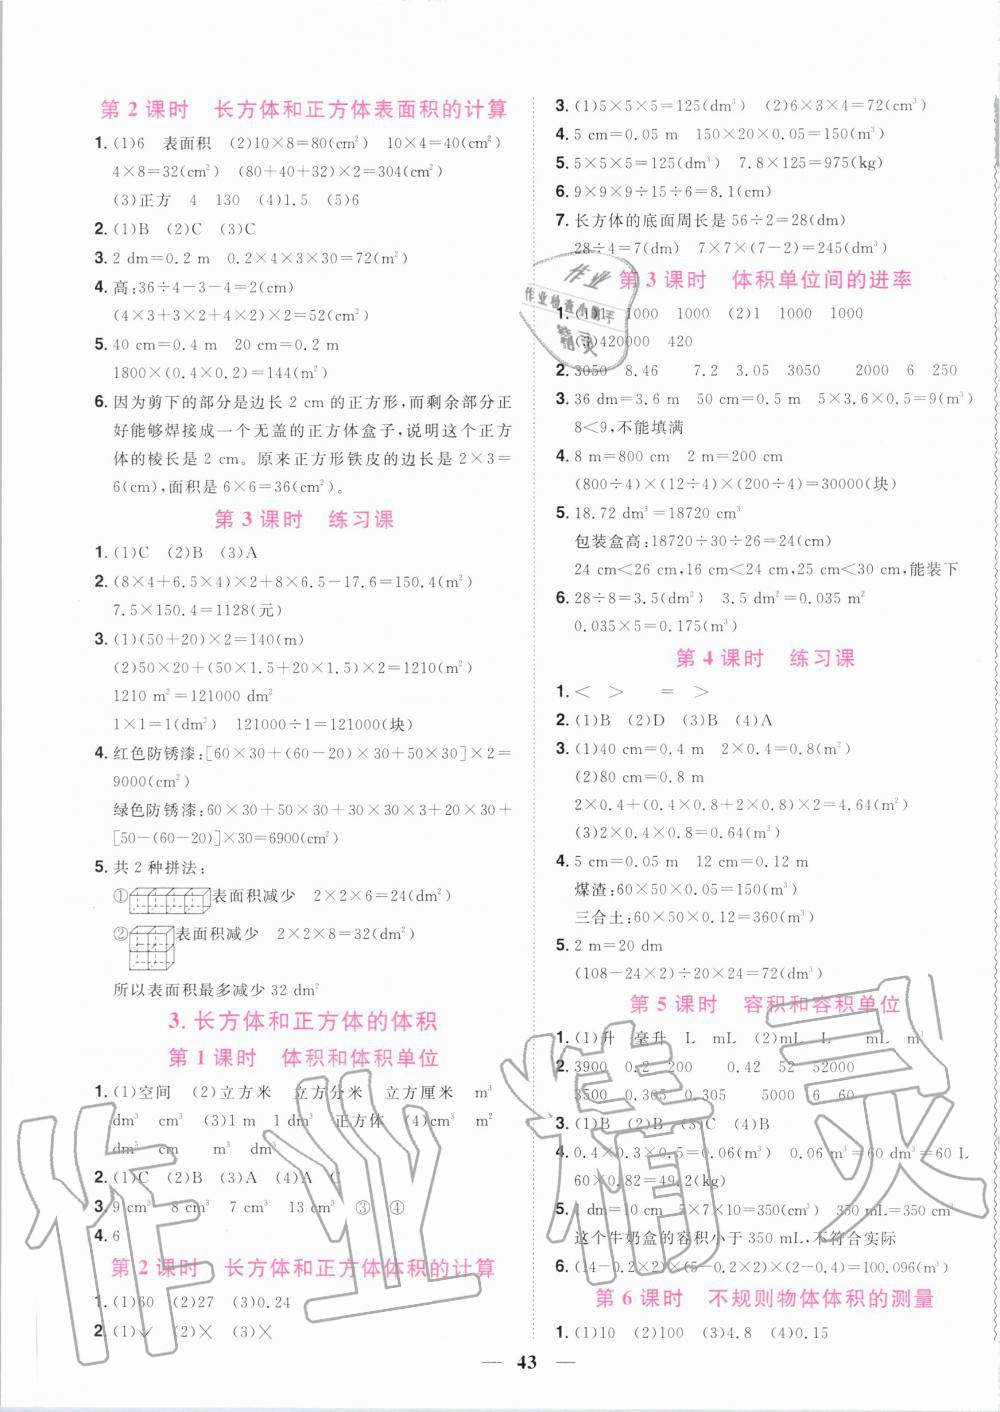 第 2 课时　长方体和正方体表面积的计算
1. (1)6　表面积　(2)10×8=80(cm²)　10×4=40(cm²)
4×8=32(cm²)　(80+40+32)×2=304(cm²)
(3)正方　4　130　(4)1.5　(5)6
2. (1)B　(2)C　(3)C
3. 2 dm=0.2 m　0.2×4×3×30=72(m²)
4. 高:36÷4-3-4=2(cm)
(4×3+3×2+4×2)×2=52(cm²)
5. 40 cm=0.4 m　20 cm=0.2 m
1800×(0.4×0.2)=144(m²)
6. 因为剪下的部分是边长 2 cm 的正方形,而剩余部分正
好能够焊接成一个无盖的正方体盒子,说明这个正方
体的棱长是 2 cm。原来正方形铁皮的边长是 2×3=
6(cm),面积是 6×6=36(cm²)。
第 3 课时　练习课
1. (1)C　(2)B　(3)A
2. (8×4+6.5×4)×2+8×6.5-17.6=150.4(m²)
7.5×150.4=1128(元)
3. (1)(50+20)×2=140(m)
(2)50×20+(50×1.5+20×1.5)×2=1210(m²)
1210 m²=121000 dm²
1×1=1(dm²)　121000÷1=121000(块)
4. 红色防锈漆:[60×30+(60-20)×30+50×30]×2=
9000(cm²)
绿色防锈漆:60×30+50×30+30×30×2+20×30+
[50-(60-20)]×30=6900(cm²)
5. 共 2 种拼法:
①表面积减少　2×2×6=24(dm²)
②表面积减少　2×2×8=32(dm²)
所以表面积最多减少 32 dm²
3. 长方体和正方体的体积
第 1 课时　体积和体积单位
1. (1)空间　(2)立方米　立方分米　立方厘米　m³
dm³　cm³　(3)1 m　1 dm³　正方体　(4)cm³　m²
dm³　cm³　m³　dm³
2. (1)C　(2)B　(3)A　(4)A　C
3. 9 cm³　8 cm³　7 cm³　13 cm³　③　④
4. 6
第 2 课时　长方体和正方体体积的计算
1. (1)60　(2)27　(3)0.24
2. (1)✓　(2)×　(3)×
3. (1)5×5×5=125(dm³)　(2)6×3×4=72(cm³)
4. 5 cm=0.05 m　150×20×0.05=150(m³)
5. 5×5×5=125(dm³)　7.8×125=975(kg)
6. 9×9×9÷15÷6=8.1(cm)
7. 长方体的底面周长是 56÷2=28(dm)
28÷4=7(dm)　7×7×(7-2)=245(dm³)
第 3 课时　体积单位间的进率
1. (1)1　1000　1000　(2)1　1000　1000
(3)420000　420
2. 3050　8.46　7.2　3.05　3050　2000　6　250
3. 36 dm=3.6 m　50 cm=0.5 m　5×3.6×0.5=9(m³)
8<9,不能填满
4. 8 m=800 cm　2 m=200 cm
(800÷4)×(12÷4)×(200÷4)=30000(块)
5. 18.72 dm³=18720 cm³
包装盒高:18720÷30÷26=24(cm)
24 cm<26 cm,16 cm<24 cm,25 cm<30 cm,能装下
6. 28÷8=3.5(dm²)　3.5 dm²=0.035 m²
0.035×5=0.175(m³)
第 4 课时　练习课
1. <　>　=　>
2. (1)B　(2)D　(3)B　(4)A
3. (1)40 cm=0.4 m　2×0.4=0.8(m²)
(2)80 cm=0.8 m
2×0.4+(0.4×0.8+2×0.8)×2=4.64(m²)
(3)2×0.4×0.8=0.64(m³)
4. 5 cm=0.05 m　12 cm=0.12 m
煤渣:60×50×0.05=150(m³)
三合土:60×50×0.12=360(m³)
5. 2 m=20 dm
(108-24×2)÷20×24=72(dm³)
第 5 课时　容积和容积单位
1. (1)升　毫升　L　mL　(2)mL　L　mL　L　m³
2. 3900　0.2　200　0.42　52　52000
3500　0.305　0.305　5000　6　60
3. (1)B　(2)B　(3)C　(4)B
4. 0.4×0.3×0.5=0.06(m³)　0.06 m³=60 dm³=60 L
60×0.82=49.2(kg)
5. 1 dm=10 cm　5×7×10=350(cm³)　350 mL=350 cm³
这个牛奶盒的容积小于 350 mL,不符合实际
6. (14-0.2×2)×(5-0.2×2)×(2-0.2×2)=100.096(m³)
第 6 课时　不规则物体体积的测量
1. (1)10　(2)100　(3)4.8　(4)0.15
43
作业
作业检查小助手
精灵
作业精灵